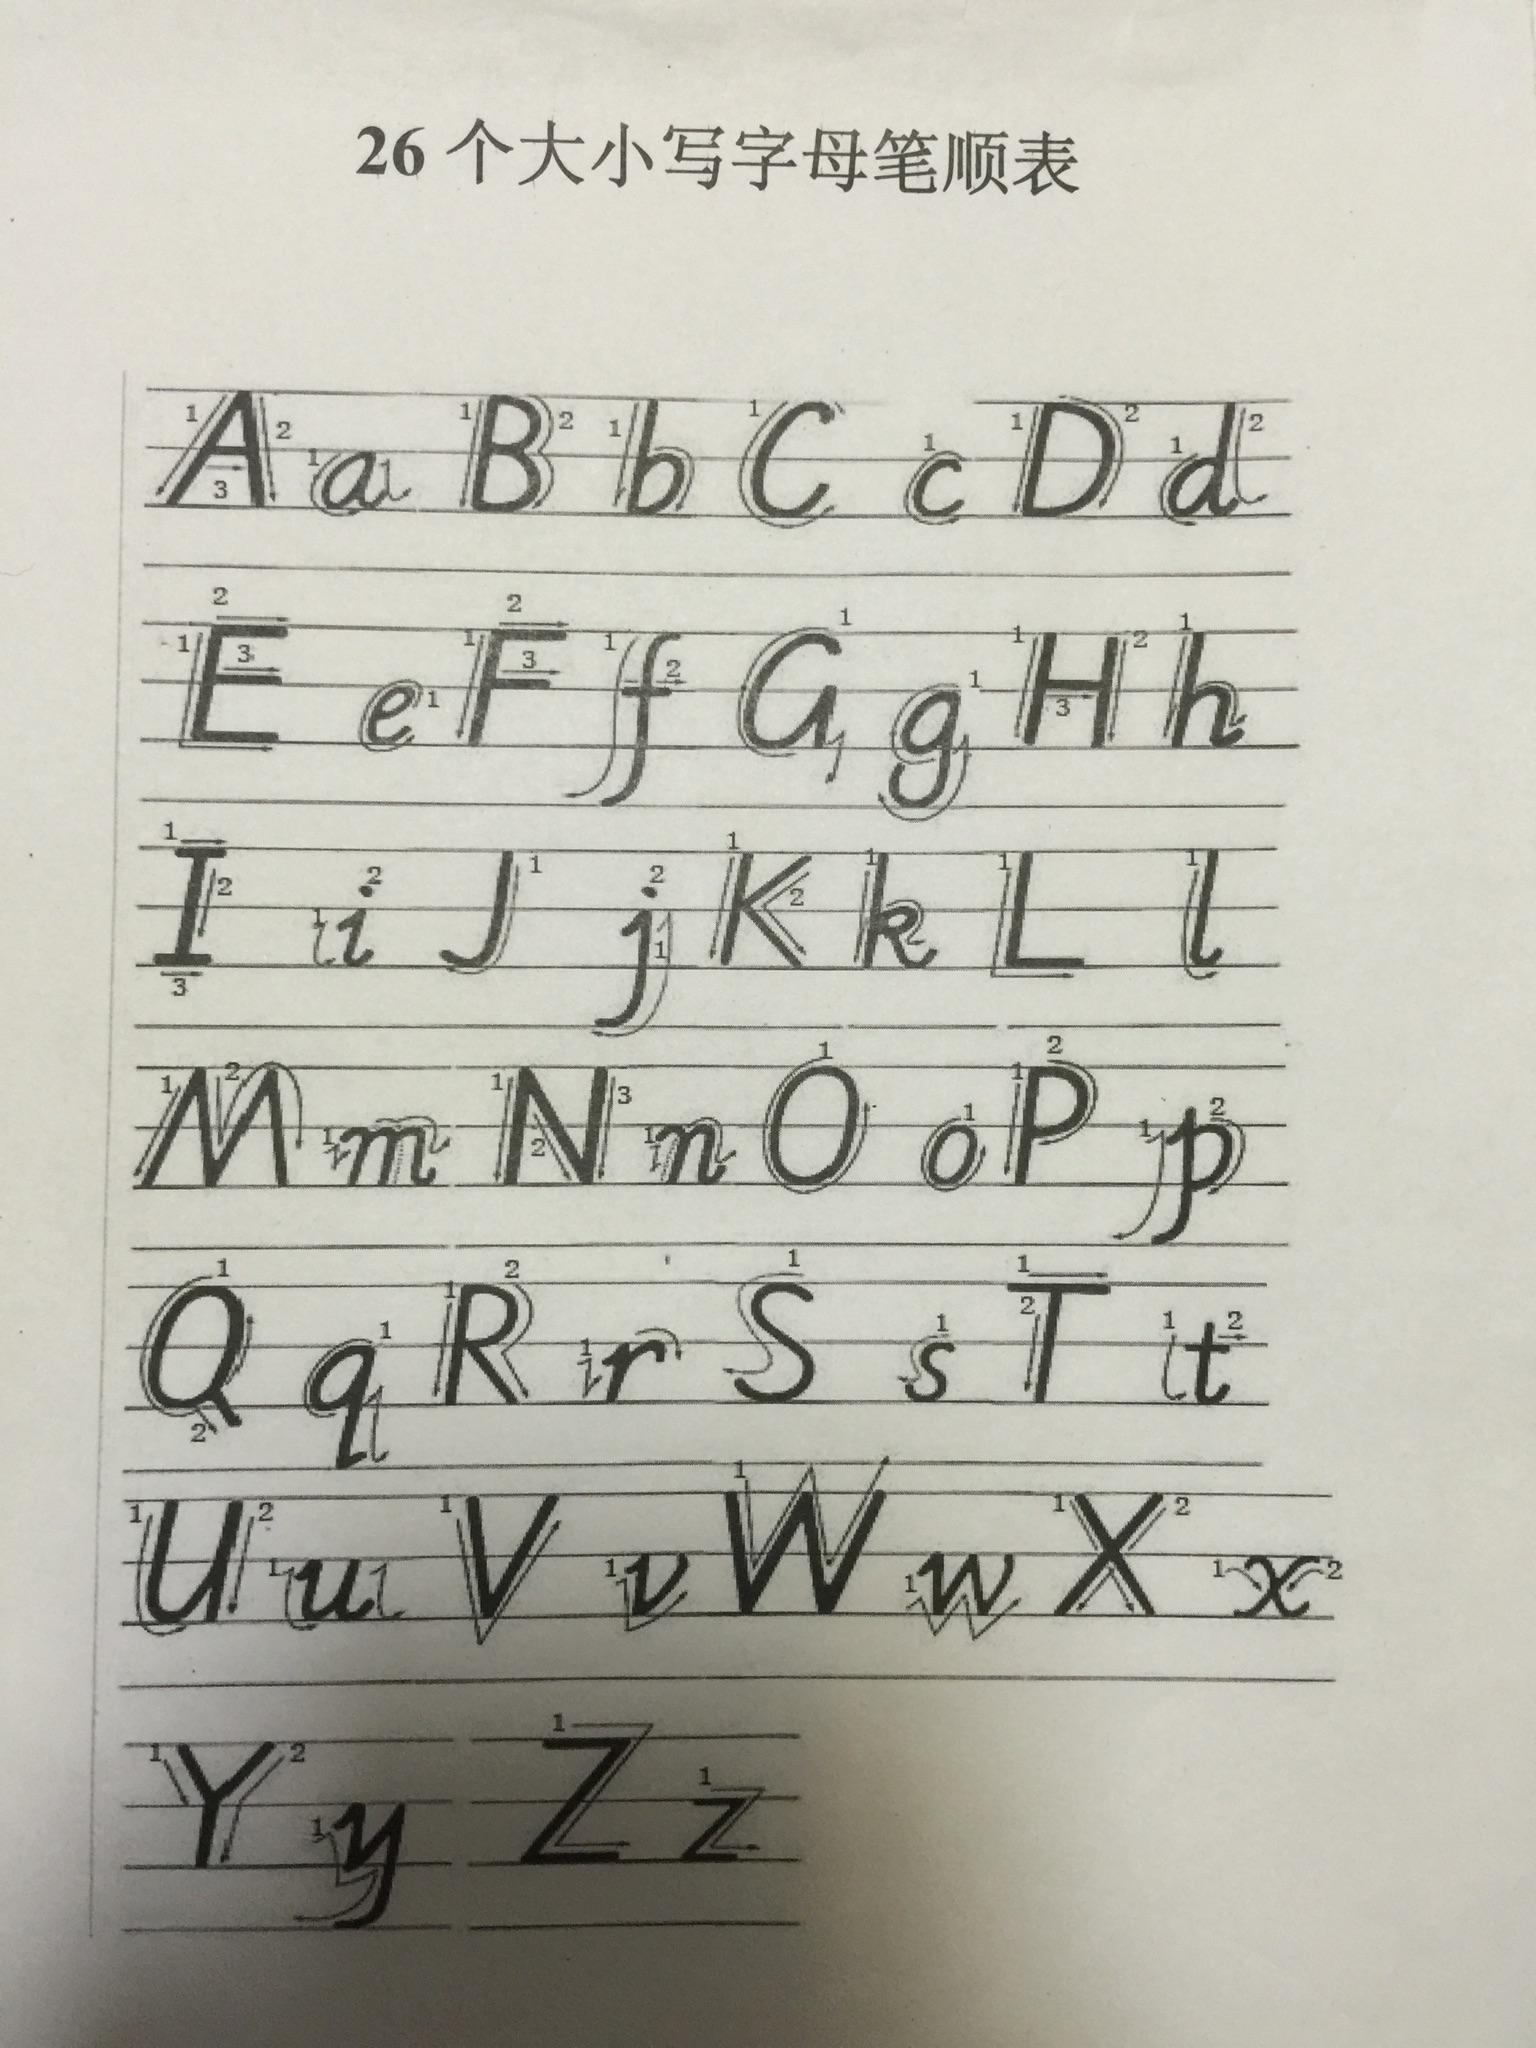 26 个大小写字母笔顺表
A a B b C c D d
E e F f G g H h
I i J j K k L l
M m N n O o P p
Q q R r S s T t
U u V v W w X x
Y y Z z